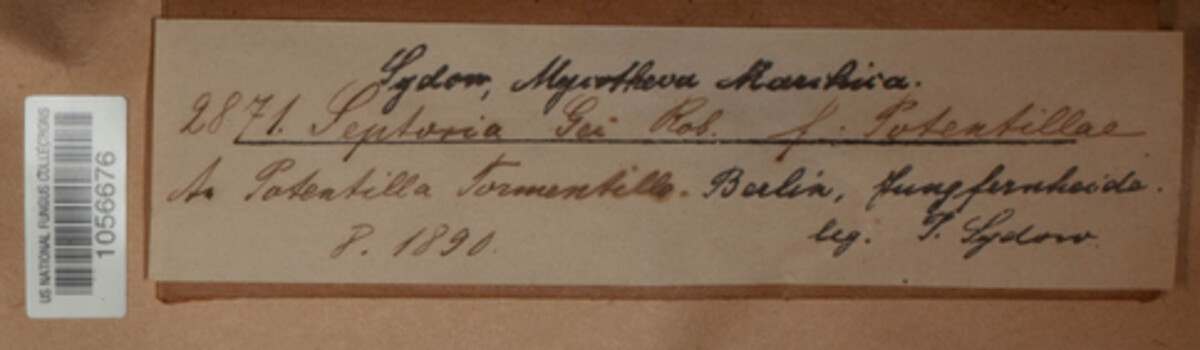 Sydow, Mycotheca Marchica.
2871. Septoria Gei Rob. f. Potentillae
An Potentilla Tormentilla. Berlin, Jungfernheide.
8. 1890. leg. P. Sydow.
US NATIONAL FUNGUS COLLECTIONS
1056676